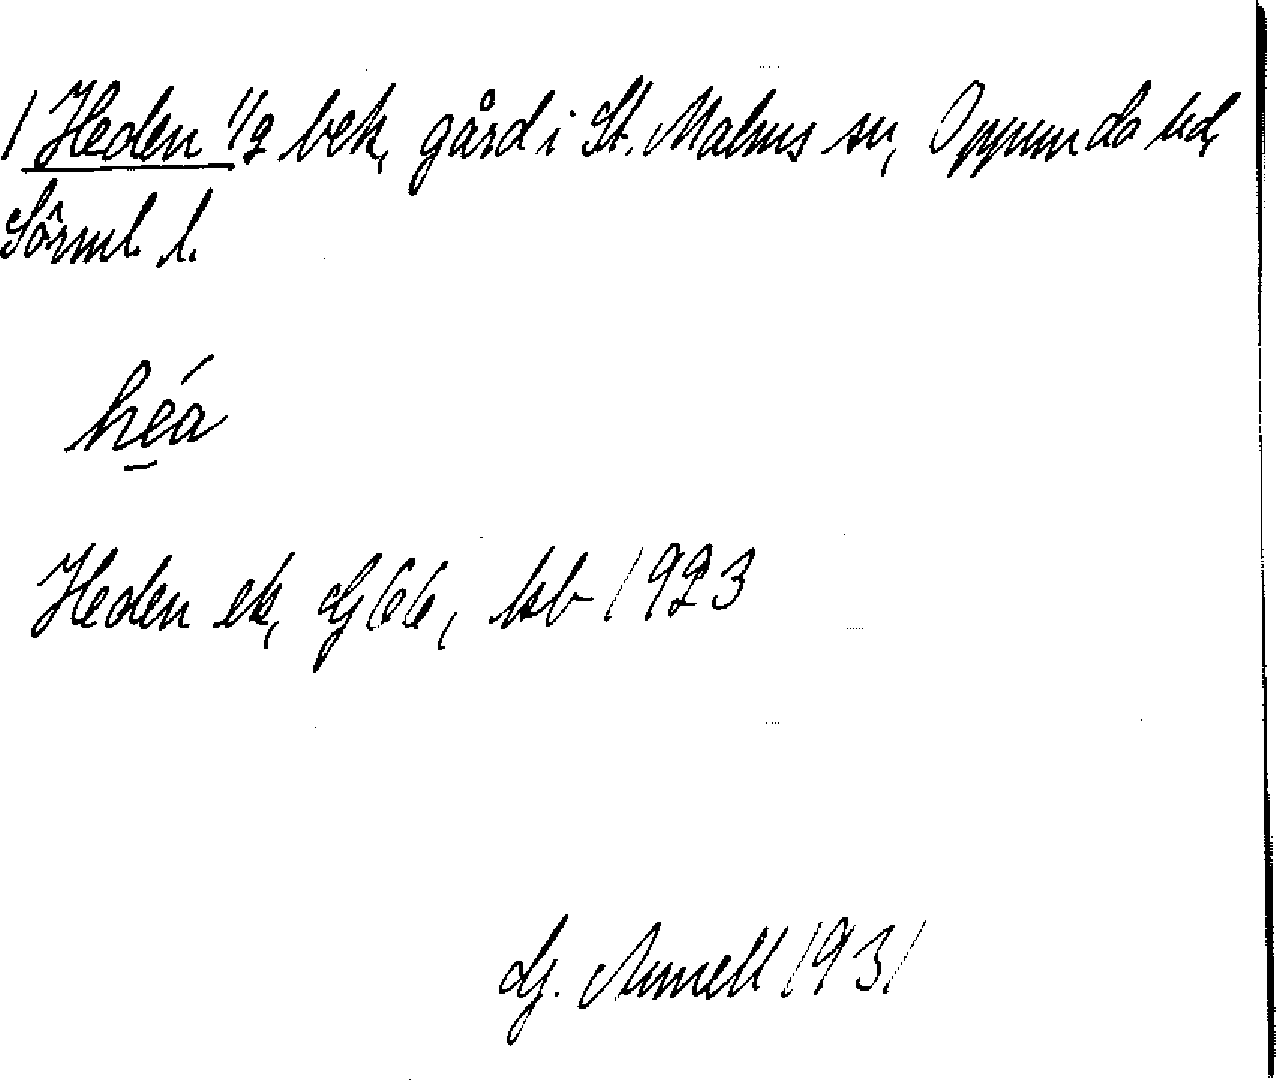 1 Heden 1/2 bek, gård i St. Malms sn, Oppunda hd,
Sörml. l.
héa
Heden ek, Gj 66, kb 1923
G. Arnell 1931